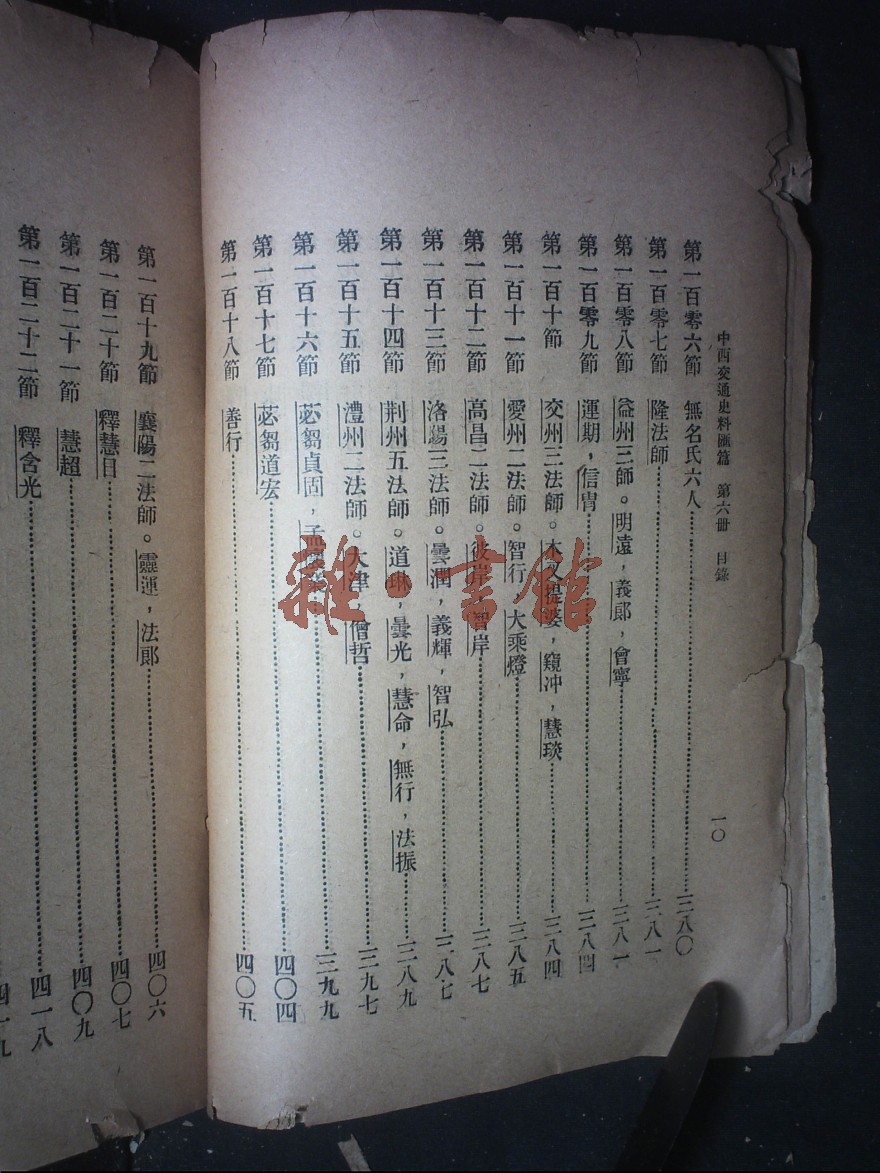 中西交通史料匯篇 第六册 目錄 一〇
第一百零六節 無名氏六人……三八〇
第一百零七節 隆法師……三八一
第一百零八節 益州三師。明遠，義郎，會寧……三八一
第一百零九節 運期，信胄……三八四
第一百十節 交州三法師。木叉提婆，窺冲，慧琰……三八四
第一百十一節 愛州二法師。智行，大乘燈……三八五
第一百十二節 高昌二法師。彼岸，智岸……三八七
第一百十三節 洛陽三法師。曇潤，義輝，智弘……三八七
第一百十四節 荆州五法師。道琳，曇光，慧命，無行，法振……三八九
第一百十五節 澧州二法師。大津，僧哲……三九七
第一百十六節 苾芻貞固，孟……三九九
第一百十七節 苾芻道宏……四〇四
第一百十八節 善行……四〇五
第一百十九節 襄陽二法師。靈運，法郎……四〇六
第一百二十節 釋慧日……四〇七
第一百二十一節 慧超……四〇九
第一百二十二節 釋含光……四一八
四一九
雜·書館